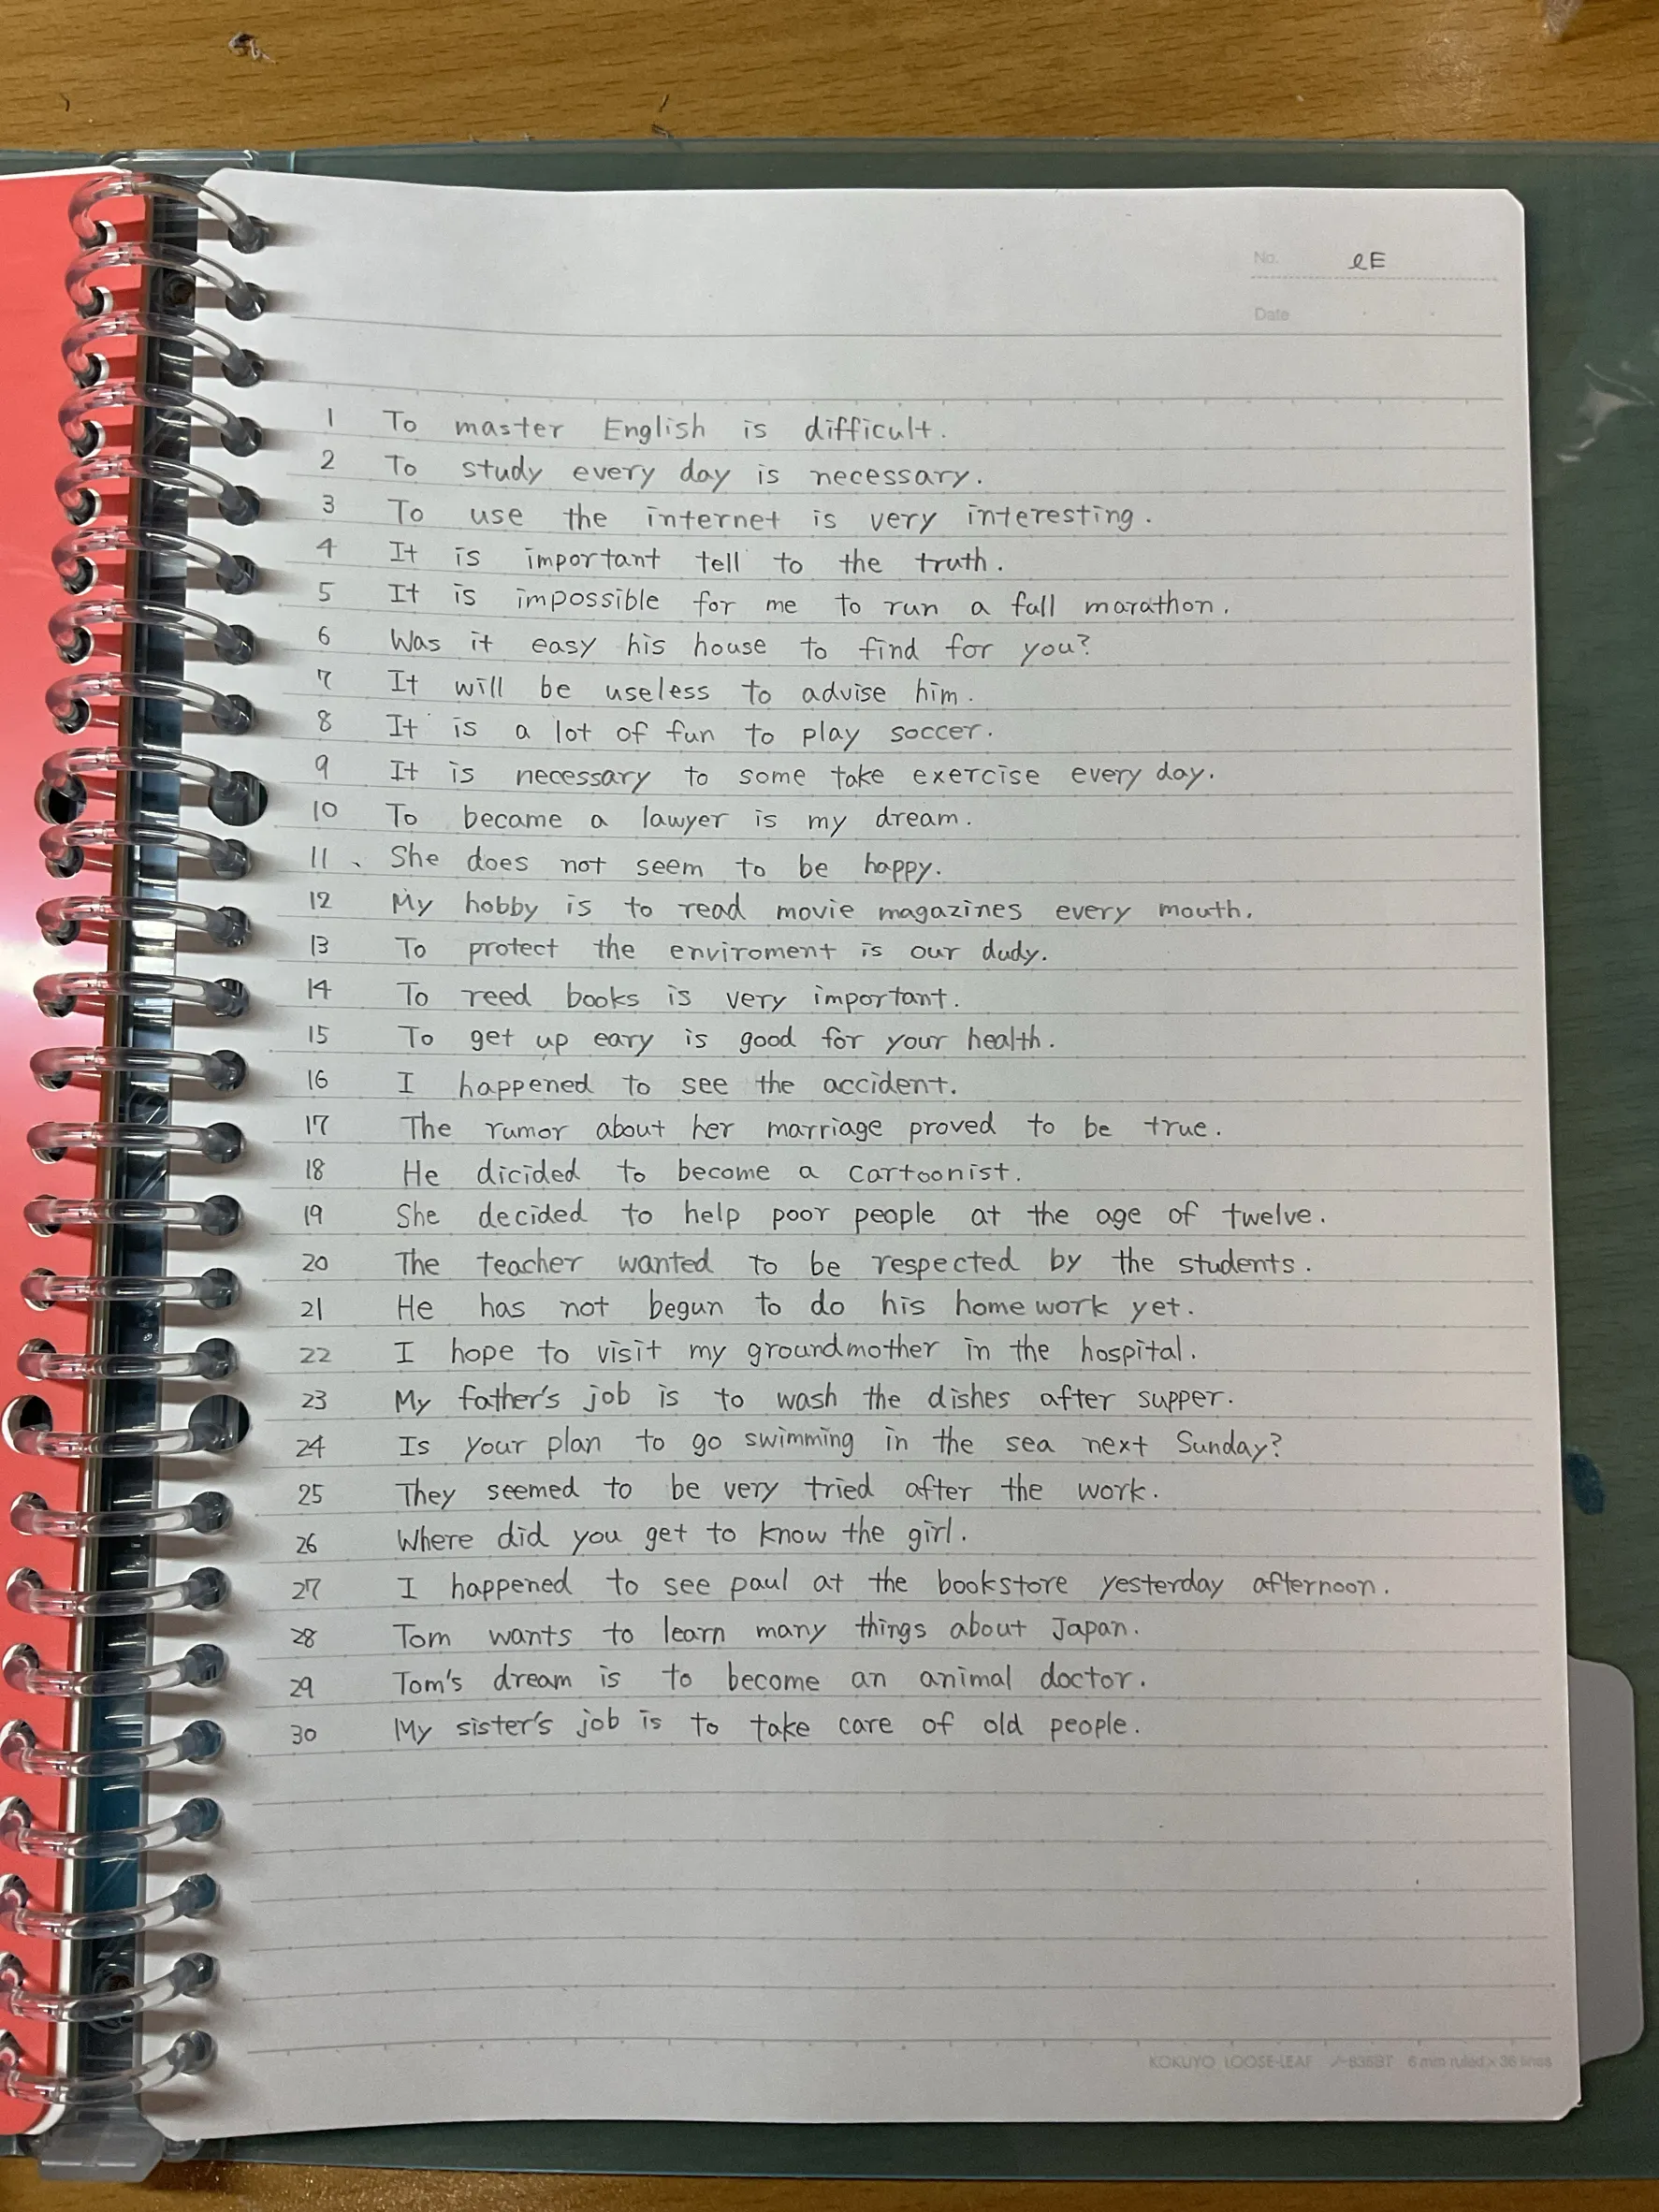 No. lE
Date
1 To master English is difficult.
2 To study every day is necessary.
3 To use the internet is very interesting.
4 It is important tell to the truth.
5 It is impossible for me to run a full marathon.
6 Was it easy his house to find for you?
7 It will be useless to advise him.
8 It is a lot of fun to play soccer.
9 It is necessary to some take exercise every day.
10 To became a lawyer is my dream.
11、 She does not seem to be happy.
12 My hobby is to read movie magazines every mouth.
13 To protect the enviroment is our dudy.
14 To reed books is very important.
15 To get up eary is good for your health.
16 I happened to see the accident.
17 The rumor about her marriage proved to be true.
18 He dicided to become a cartoonist.
19 She decided to help poor people at the age of twelve.
20 The teacher wanted to be respected by the students.
21 He has not begun to do his home work yet.
22 I hope to visit my groundmother in the hospital.
23 My father's job is to wash the dishes after supper.
24 Is your plan to go swimming in the sea next Sunday?
25 They seemed to be very tried after the work.
26 Where did you get to know the girl.
27 I happened to see paul at the bookstore yesterday afternoon.
28 Tom wants to learn many things about Japan.
29 Tom's dream is to become an animal doctor.
30 My sister's job is to take care of old people.
KOKUYO LOOSE-LEAF ノ-836BT 6 mm ruled × 36 lines